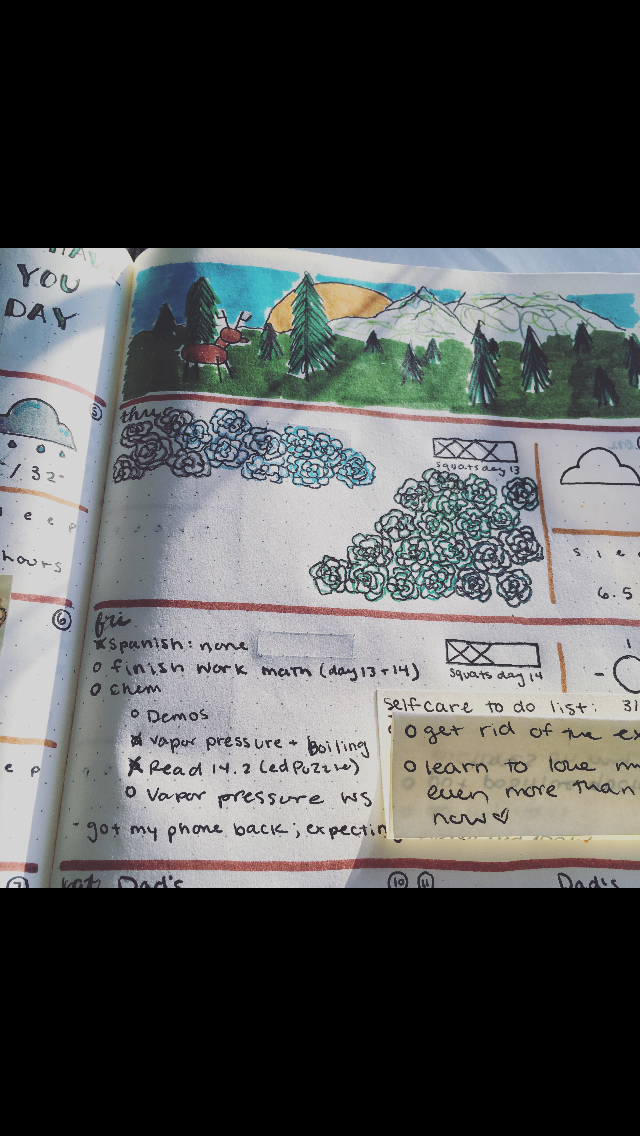 YOU
DAY
5
thurs
squats day 13
32°
leep
hours
slee
6.5
6
fri
Spanish: none
finish work math (day 13+14)
chem
Demos
vapor pressure + Boiling
Read 14.2 (edpuzzle)
Vapor pressure WS
- got my phone back; expecting
squats day 14
selfcare to do list: 31
get rid of the ex
learn to love m
even more than
now♡
ep
7
sat Dad's
10 11
Dad's